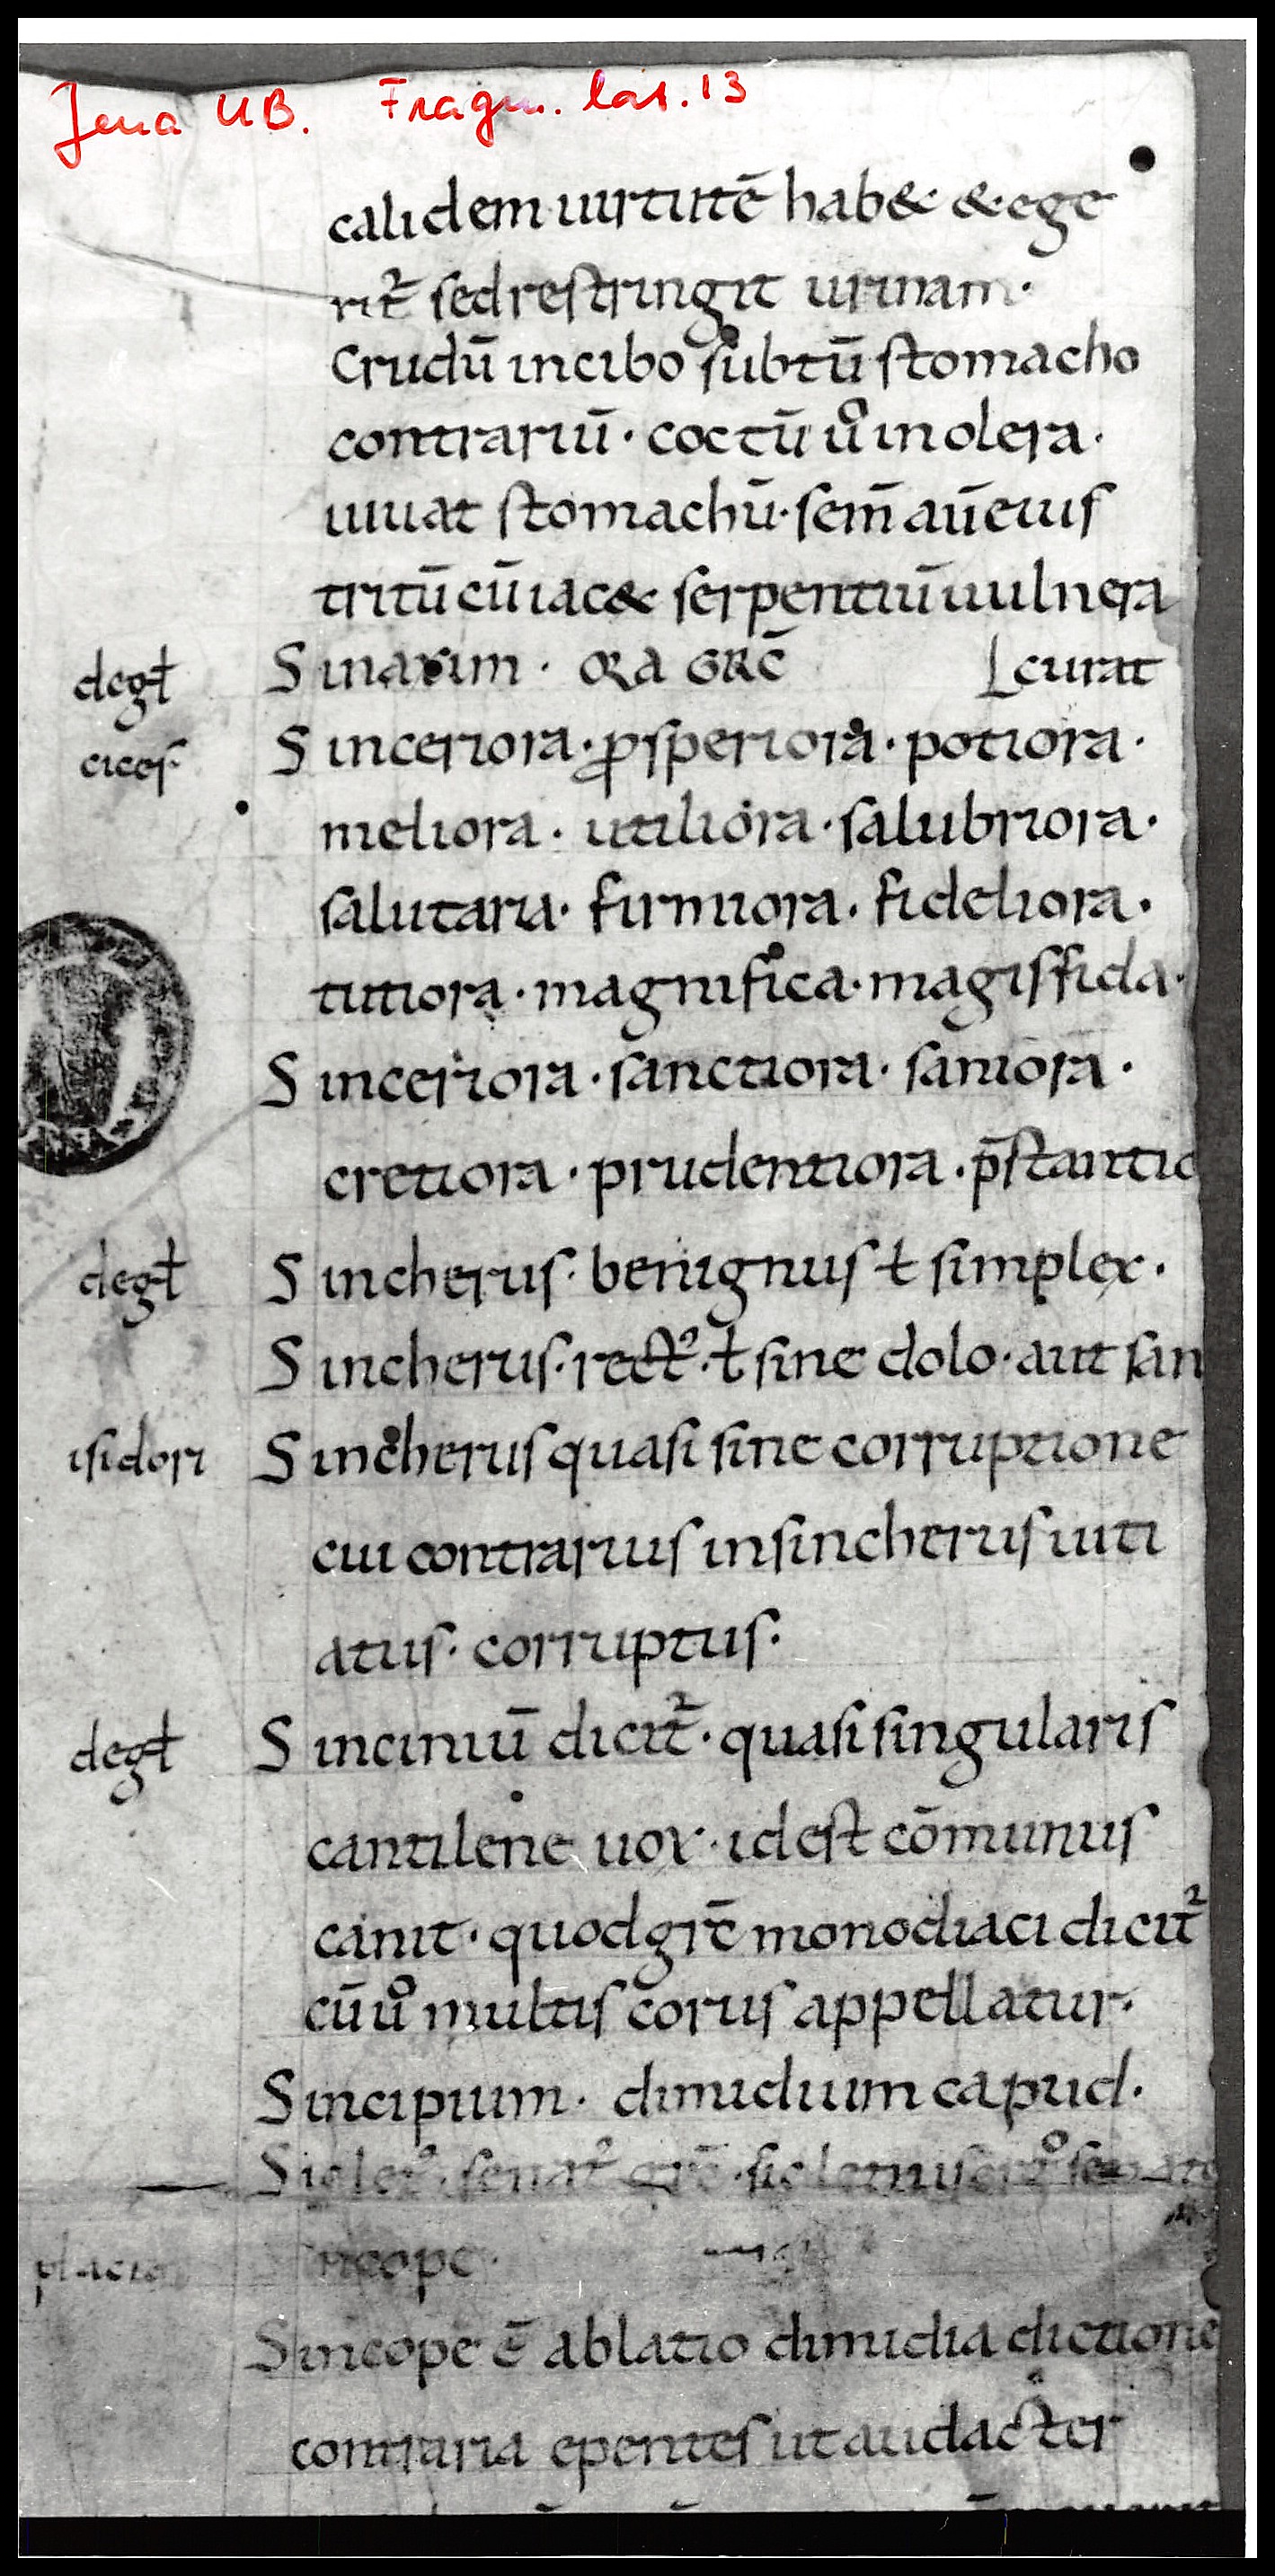 Jena UB. Fragm. lat. 13
calidem uirtutē hab& & ege
rit᷑ sed restringit urinam·
Crudū in cibo subtū stomacho
contrariū · coctū uͦ in olera ·
iuuat stomachū · sem̄ aūeius
tritū cū iac& serpentiū uulnera
degł Sinaxim · ORA GRC̄ curat
cicer̄ Sinceriora · ꝓsperiora · potiora ·
meliora · utiliora · salubriora ·
salutaria · firmiora · fideliora ·
tutiora · magnifica · magis fida ·
Sinceriora · sanctiora · saniora ·
cretiora · prudentiora · p̄stantio
degł Sincherus · benignus ł simplex ·
Sincherus · rect᾿ · ł sine dolo · aut san
isidori Sincherus quasi sine corruptione
cui contrarius insincherus uiti
atus · corruptus ·
degł Sinciniū dicit᷑ · quasi singularis
cantilene uox · idest cōmunius
canit · quod grē monodiaci dicit᷑
cū uͦ multis corus appellatur ·
Sincipium · dimidium capud ·
placid
Sincope ē ablatio dimidia dictione
contraria epentes ut audacter